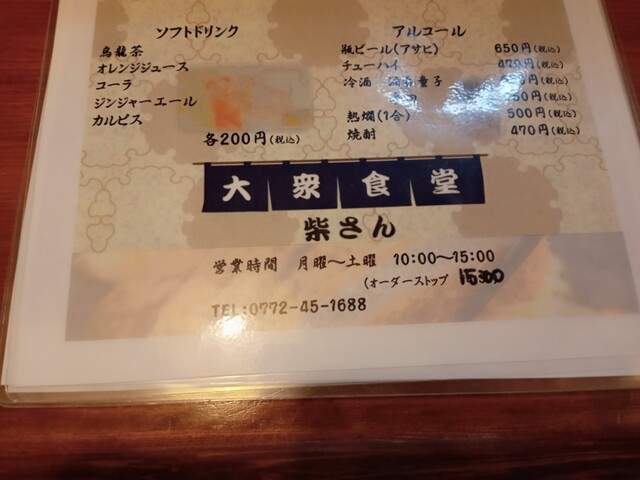 ソフトドリンク
烏龍茶
オレンジジュース
コーラ
ジンジャーエール
カルピス
各200円(税込)
アルコール
瓶ビール(アサヒ) 650円(税込)
チューハイ 470円(税込)
冷酒 童子 円(税込)
50円(税込)
熱燗(1合) 500円(税込)
焼酎 470円(税込)
大衆食堂
柴さん
営業時間 月曜～土曜 10:00～15:00
(オーダーストップ
TEL:0772-45-1688